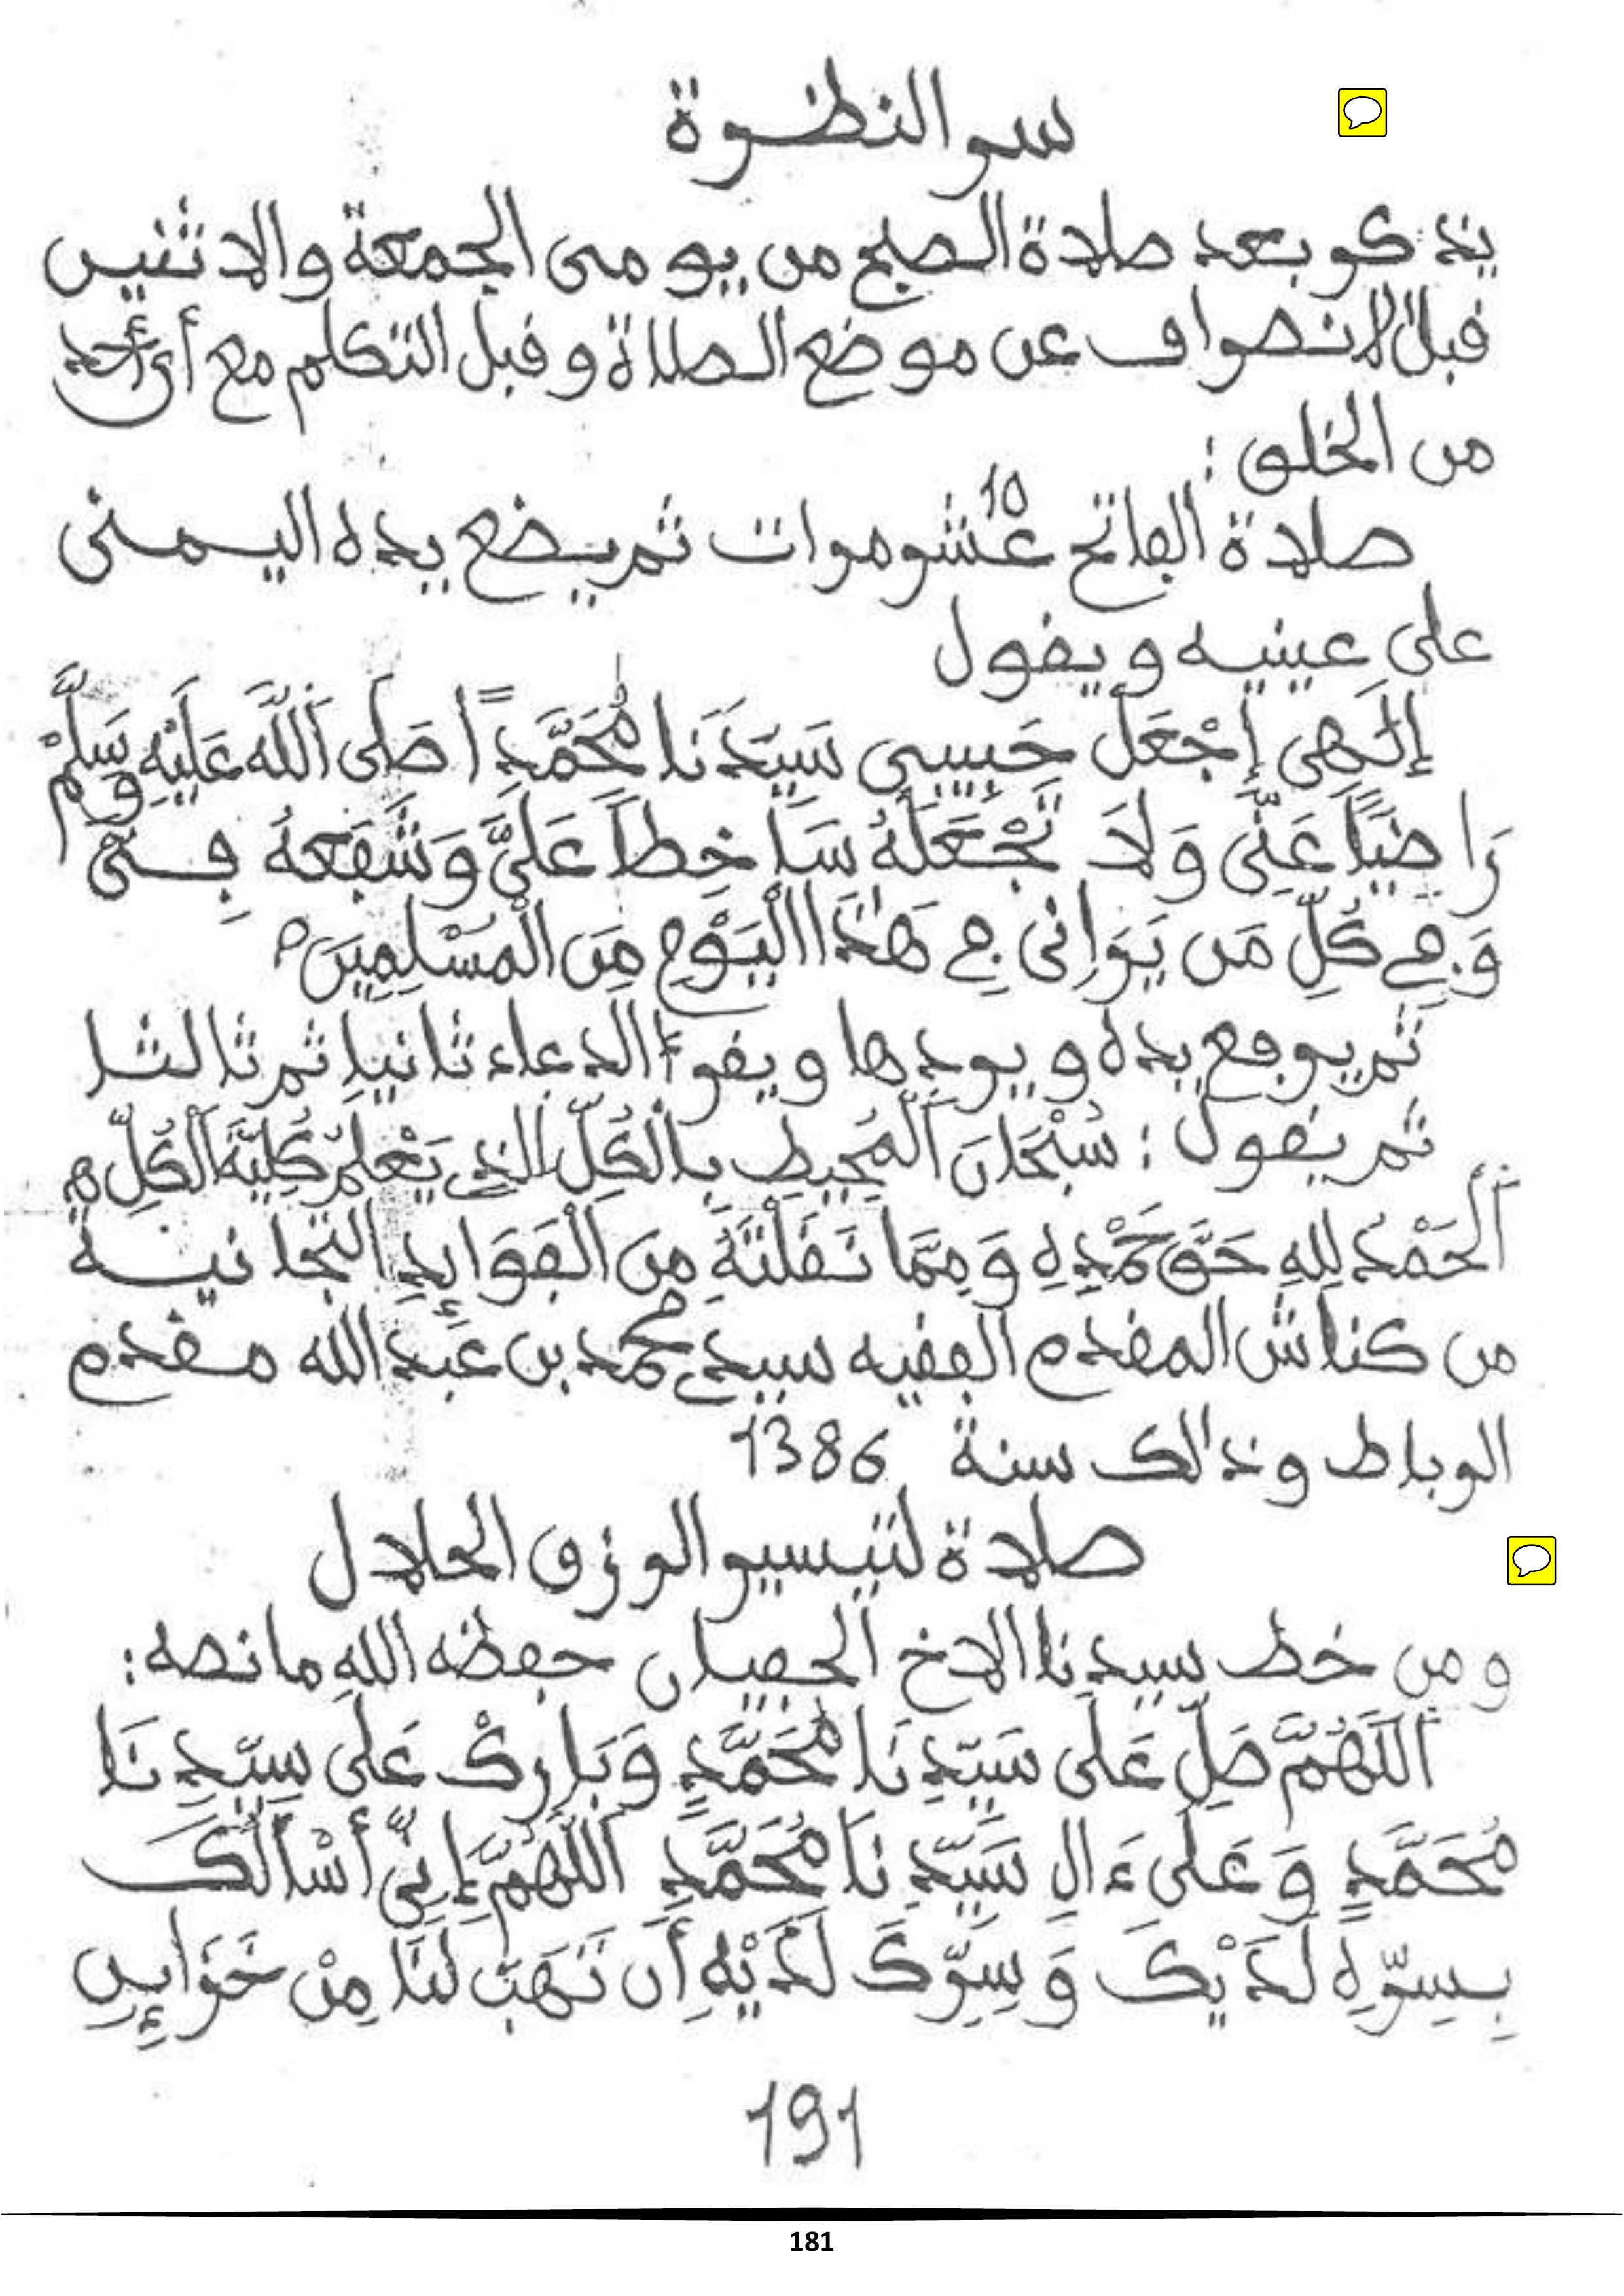 سر النظرة
يذكر بعد صلاة الصبح من يومى الجمعة والاثنين
قبل الانصراف عن موضع الصلاة و قبل التكلم مع أي أحد
من الخلق :
10
صلاة الفاتح عشر مرات ثم يضع يده اليمنى
على عينيه و يقول
إِلَـهِى إِجْعَلْ حَبِيبِى سَيِّدَنَا مُحَمَّدِاً صَلَى اَللَّه عَلَيْهِ وَسَلِّمْ
رَاضِيًا عَنِّى وَلَا تَجْعَلْهُ سَاخِطاً عَلَيَّ وَشَفِّعهُ فِـىَّ
وَفِي كُلِّ مَن يَرَانِى فِي هَذَا الْيَوْمِ مِنَ الْمُسْلِمِينَ م
ثم يرفع يده و يردها و يقرأ الدعاء ثانيا ثم ثالثا
ثم يقول : سُبْحَانَ اَلْمُحِيطِ بِالْكُلِّ الذِي يَعْلَمُ كُلِيَّةَ اَلْكُلِّ م
اَلْحَمْدُ لِلهِ حَقَّ حَمْدِهِ وَمِمَّا نَقَلْتُهُ مِنَ الْفَوَائِدِ التجانيـة
من كناش المقدم الفقيه سيدي محمد بن عَبد الله مـقدم
الرباط وذالك سنة 1386
صلاة لتيسير الرزق الحلال
و من خط سيدنا الاخ الجصان حفظه اللهِ ما نصه :
اَللَّهُمَّ صَلِّ عَلَى سَيِّدِنَا مُحَمَّدٍ وَبَارِكْ عَلَى سَيِّدِنَا
مُحَمَّدٍ وَعَلَى ءَالِ سَيِّدِنَا مُحَمَّدٍ اللَّهُمَّ إِنِّي أَسْأَلُكَ
بِسِرِّهِ لَدَيْكَ وَسِرِّكَ لَدَيْهِ أَن تَهَبَ لَنَا مِنْ خَزَائِنِ
191
181